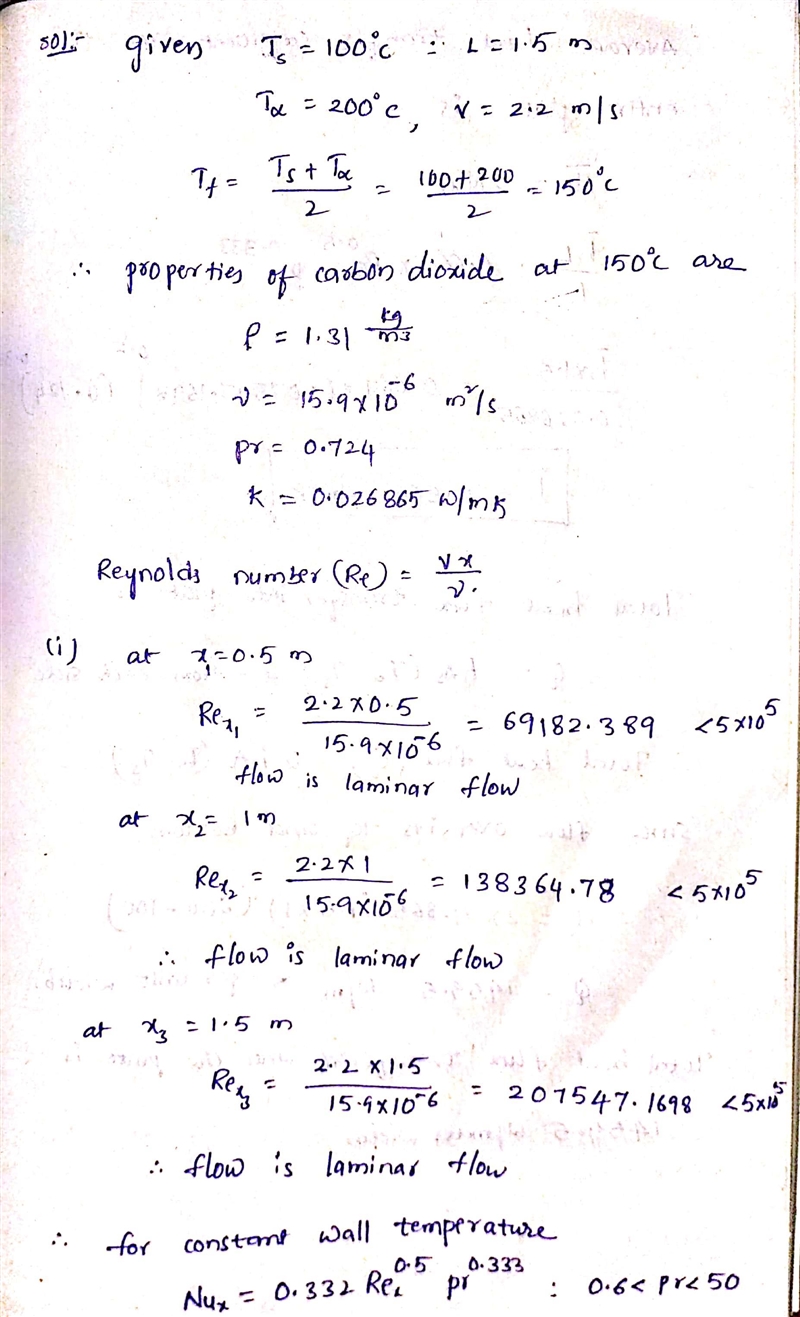 sol:- given Ts = 100°c : L = 1.5 m
Tα = 200°c, v = 2.2 m/s
Tf = (Ts + Tα)/2 = (100+200)/2 = 150°c
∴ properties of carbon dioxide at 150°c are
ρ = 1.31 kg/m3
ν = 15.9×10^-6 m²/s
pr = 0.724
k = 0.026865 w/mk
Reynolds number (Re) = vx/ν.
(i) at x1=0.5 m
Rex1 = (2.2×0.5)/(15.9×10^-6) = 69182.389 <5×10^5
flow is laminar flow
at x2= 1m
Rex2 = (2.2×1)/(15.9×10^-6) = 138364.78 <5×10^5
∴ flow is laminar flow
at x3 = 1.5 m
Rex3 = (2.2×1.5)/(15.9×10^-6) = 207547.1698 <5×10^5
∴ flow is laminar flow
∴ for constant wall temperature
Nux = 0.332 Rex^0.5 pr^0.333 : 0.6< pr<50